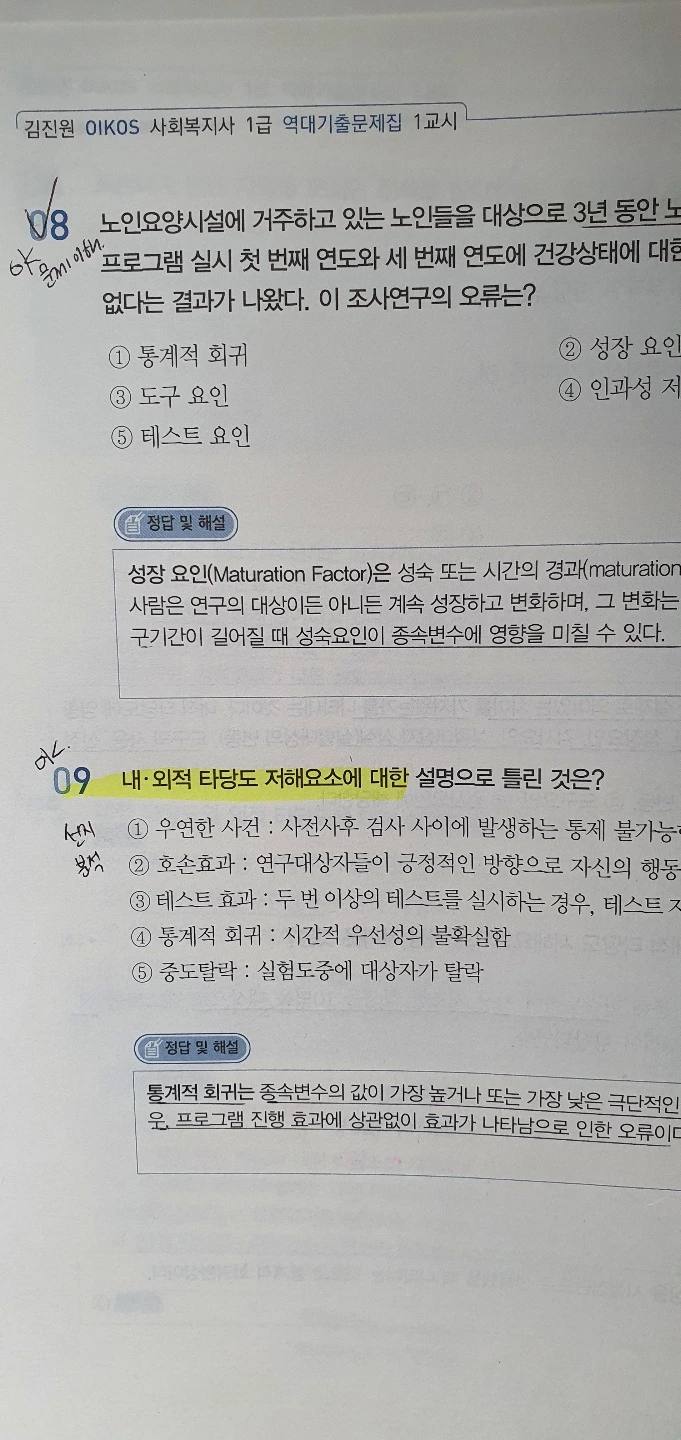 김진원 OIKOS 사회복지사 1급 역대기출문제집 1교시
08 노인요양시설에 거주하고 있는 노인들을 대상으로 3년 동안 노
OK 문제이해.
프로그램 실시 첫 번째 연도와 세 번째 연도에 건강상태에 대한
없다는 결과가 나왔다. 이 조사연구의 오류는?
① 통계적 회귀 ② 성장 요인
③ 도구 요인 ④ 인과성 저
⑤ 테스트 요인
정답 및 해설
성장 요인(Maturation Factor)은 성숙 또는 시간의 경과(maturation
사람은 연구의 대상이든 아니든 계속 성장하고 변화하며, 그 변화는
구기간이 길어질 때 성숙요인이 종속변수에 영향을 미칠 수 있다.
09 내·외적 타당도 저해요소에 대한 설명으로 틀린 것은?
선지
분석
① 우연한 사건 : 사전사후 검사 사이에 발생하는 통제 불가능
② 호손효과 : 연구대상자들이 긍정적인 방향으로 자신의 행동
③ 테스트 효과 : 두 번 이상의 테스트를 실시하는 경우, 테스트 자
④ 통계적 회귀 : 시간적 우선성의 불확실함
⑤ 중도탈락 : 실험도중에 대상자가 탈락
정답 및 해설
통계적 회귀는 종속변수의 값이 가장 높거나 또는 가장 낮은 극단적인
우, 프로그램 진행 효과에 상관없이 효과가 나타남으로 인한 오류이다